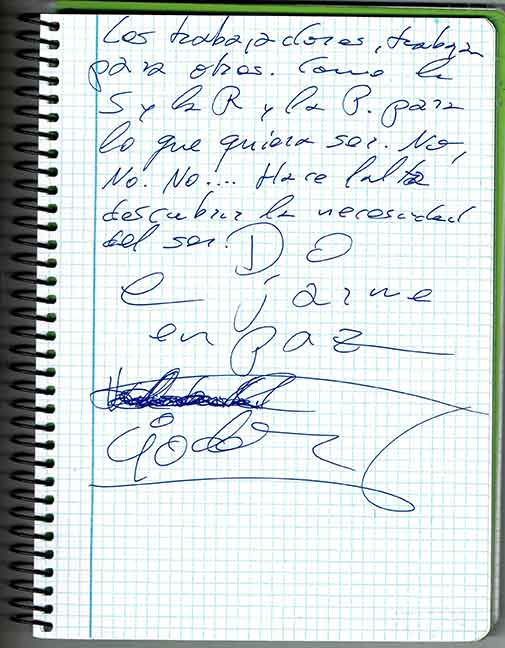 Los trabajadores, trabajan
para otros. Como la
S y la R y la P. para
lo que quiera ser. No,
No. No.... Hace falta
descubrir la necesidad
del ser. D O
e jarme
en paz